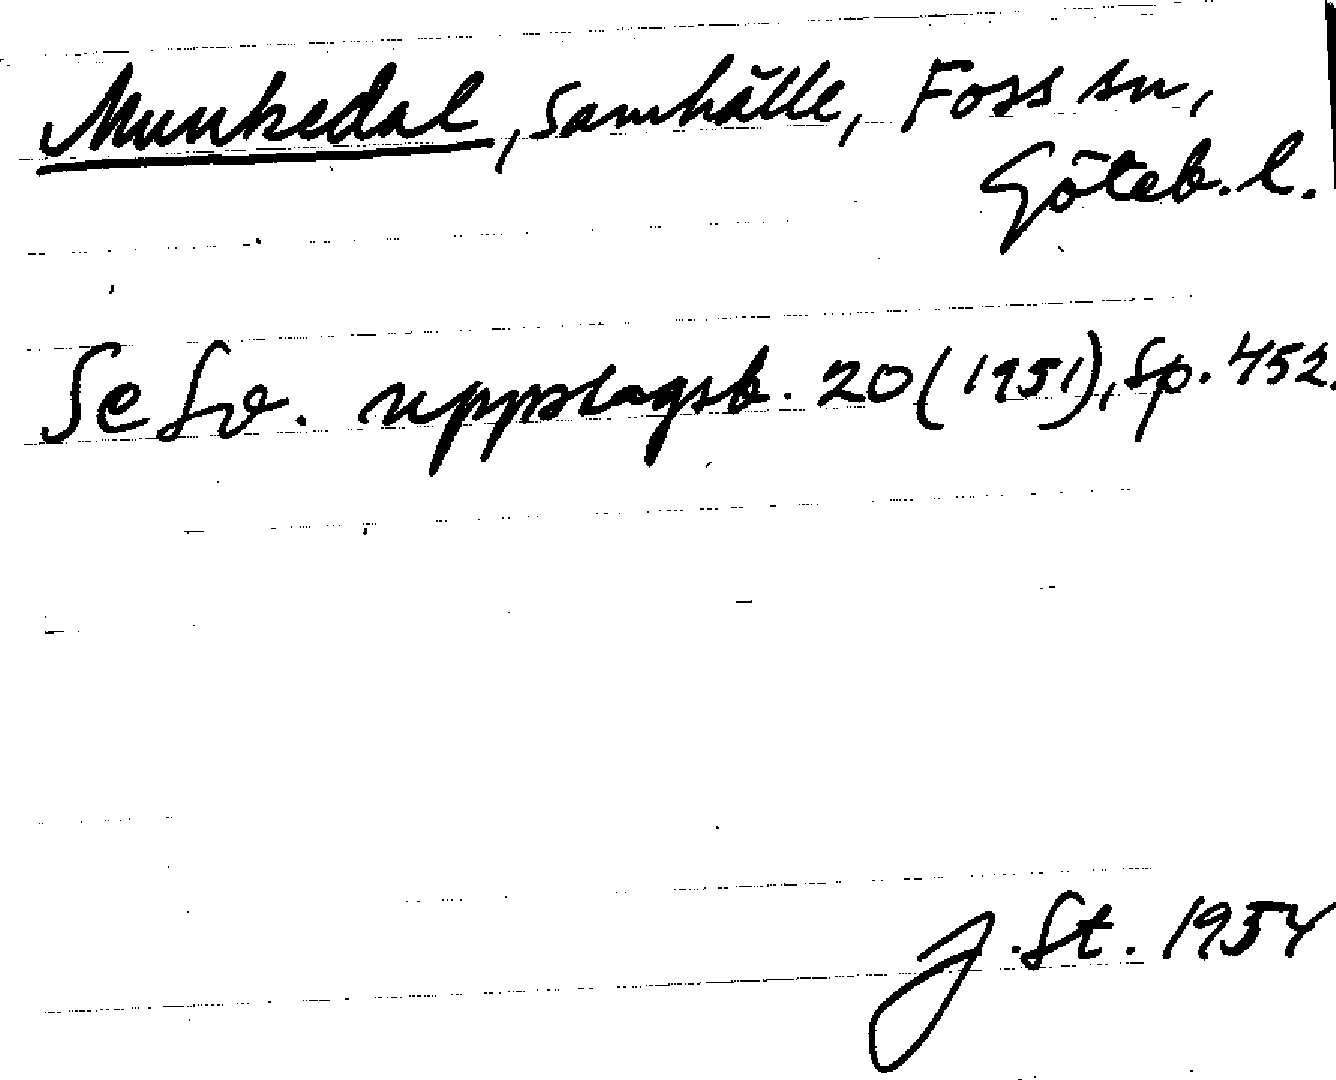 Munkedal, samhälle, Foss sn,
Göteb. l.
Se Sv. uppslagsb. 20 (1951), sp. 452.
J. St. 1954